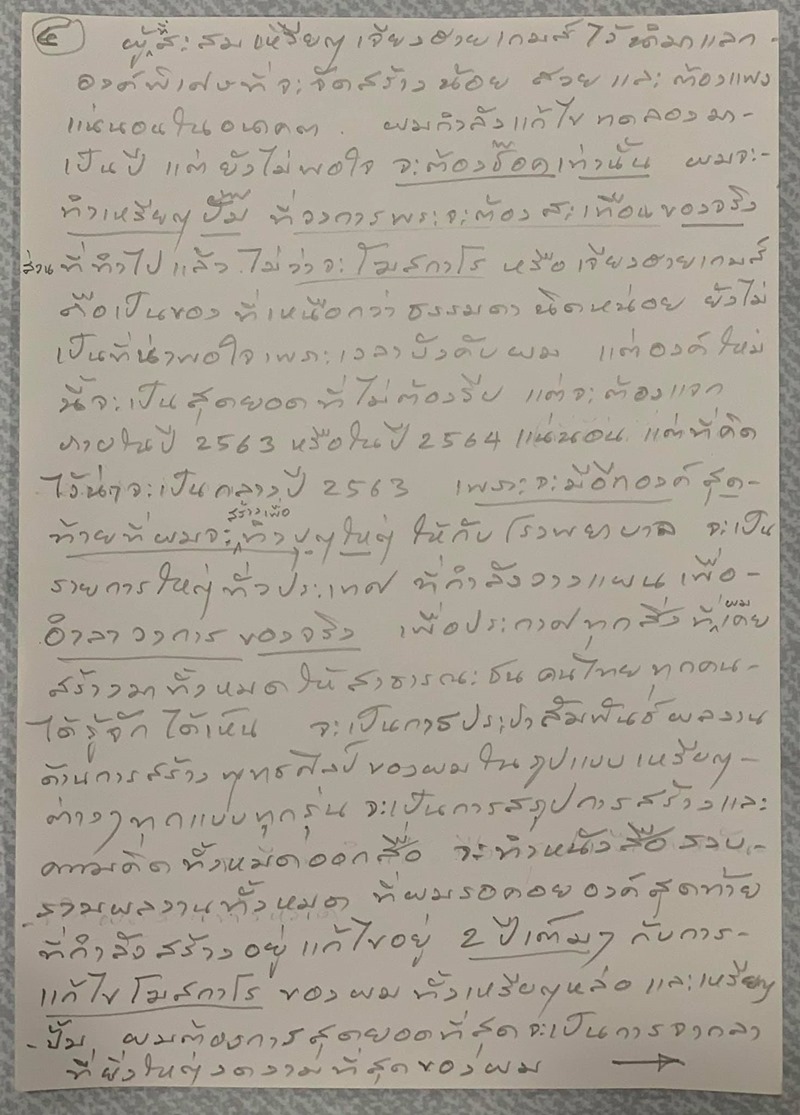 ๕ ผู้ที่สะสมเหรียญเจียงฮายเกมส์ไว้นำมาแลก-
องค์พิเศษที่จะจัดสร้างน้อย สวยและต้องแพง
แน่นอนในอนาคต. ผมกำลังแก้ไขทดลองมา-
เป็นปี แต่ยังไม่พอใจ จะต้องช๊อคเท่านั้น ผมจะ-
ทำเหรียญปั๊ม ที่วงการพระจะต้องสะเทือนของจริง
ส่วนที่ทำไปแล้ว ไม่ว่าจะโมสกาโร หรือเจียงฮายเกมส์
คือเป็นของที่เหนือกว่าธรรมดานิดหน่อย ยังไม่
เป็นที่น่าพอใจเพราะเวลาบังคับผม แต่องค์ใหม่
นี้จะเป็นสุดยอดที่ไม่ต้องรีบ แต่จะต้องแจก
ภายในปี 2563 หรือในปี 2564 แน่นอน แต่ที่คิด
ไว้น่าจะเป็นกลางปี 2563 เพราะจะมีอีกองค์สุด-
ท้ายที่ผมจะสร้างเพื่อทำบุญใหญ่ ให้กับโรงพยาบาล จะเป็น
รายการใหญ่ทั่วประเทศ ที่กำลังวางแผนเพื่อ-
อำลาวงการของจริง เพื่อประกาศทุกสิ่งที่ผมเคย
สร้างมาทั้งหมดให้สาธารณะชน คนไทยทุกคน-
ได้รู้จัก ได้เห็น จะเป็นการประชาสัมพันธ์ผลงาน
ด้านการสร้างพุทธศิลป์ของผมในรูปแบบเหรียญ-
ต่างๆทุกแบบทุกรุ่น จะเป็นการสรุปการสร้างและ
ความคิดทั้งหมดออกสื่อ จะทำหนังสือรวบ-
รวมผลงานทั้งหมด ที่ผมรอคอยองค์สุดท้าย
ที่กำลังสร้างอยู่ แก้ไขอยู่ 2 ปีเต็มๆ กับการ-
แก้ไขโมสกาโร ของผม ทั้งเหรียญหล่อและเหรียญ
-ปั๊ม ผมต้องการสุดยอดที่สุดจะเป็นการจากลา
ที่ยิ่งใหญ่งดงามที่สุดของผม →